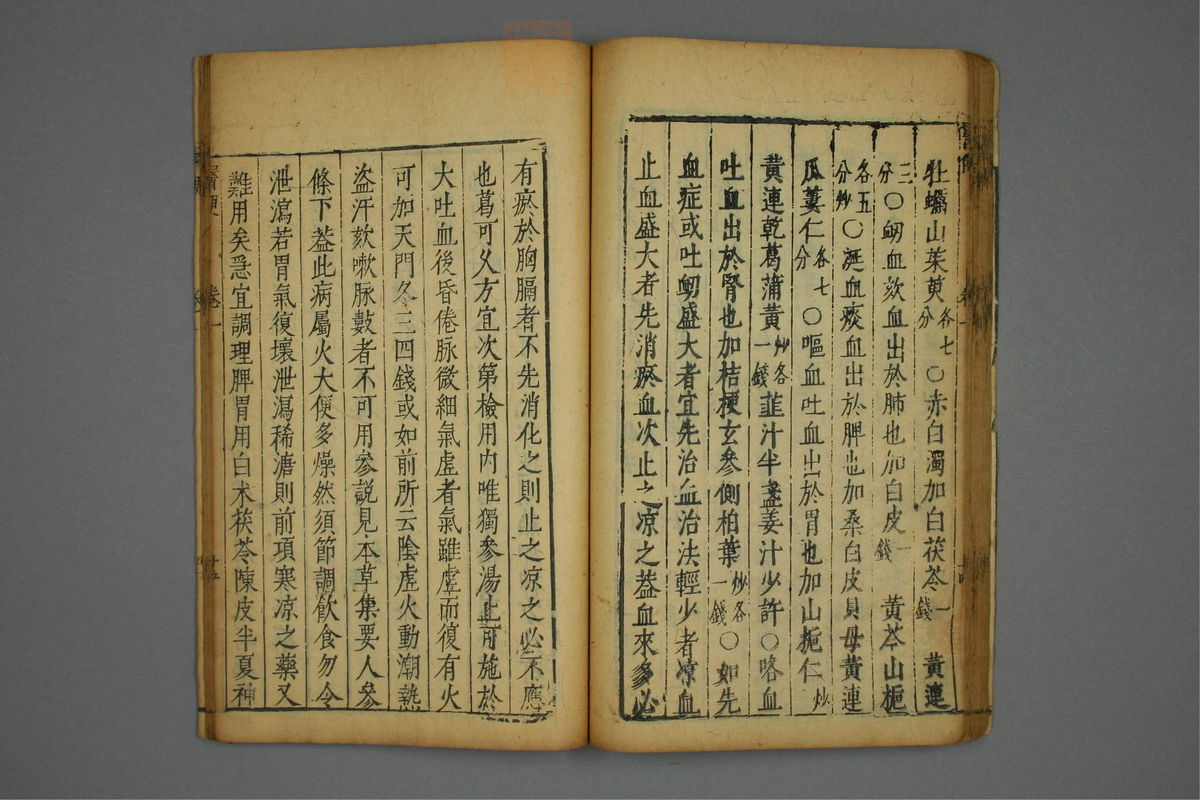 牡蠣山茱萸各七分○赤白濁加白茯苓一錢黃連
三分○衂血欬血出於肺也加白皮一錢黃芩山梔
各五分炒○涎血痰血出於脾也加桑白皮貝母黃連
瓜蔞仁各七分○嘔血吐血出於胃也加山梔仁炒
黃連乾葛蒲黃炒各一錢韮汁半盞姜汁少許○咯血
吐血出於腎也加桔梗玄參側柏葉炒各一錢○如先
血症或吐衂盛大者宜先治血治法輕少者凉血
止血盛大者先消瘀血次止之凉之葢血來多必
有瘀於胸膈者不先消化之則止之凉之必不應
也葛可久方宜次第檢用内唯獨參湯止可施於
大吐血後昏倦脉微細氣虛者氣雖虛而復有火
可加天門冬三四錢或如前所云陰虛火動潮熱
盜汗欬嗽脉數者不可用參說見本草集要人參
條下葢此病屬火大便多燥然須節調飲食勿令
泄瀉若胃氣復壞泄瀉稀溏則前項寒凉之藥又
難用矣急宜調理脾胃用白术茯苓陳皮半夏神
卷一